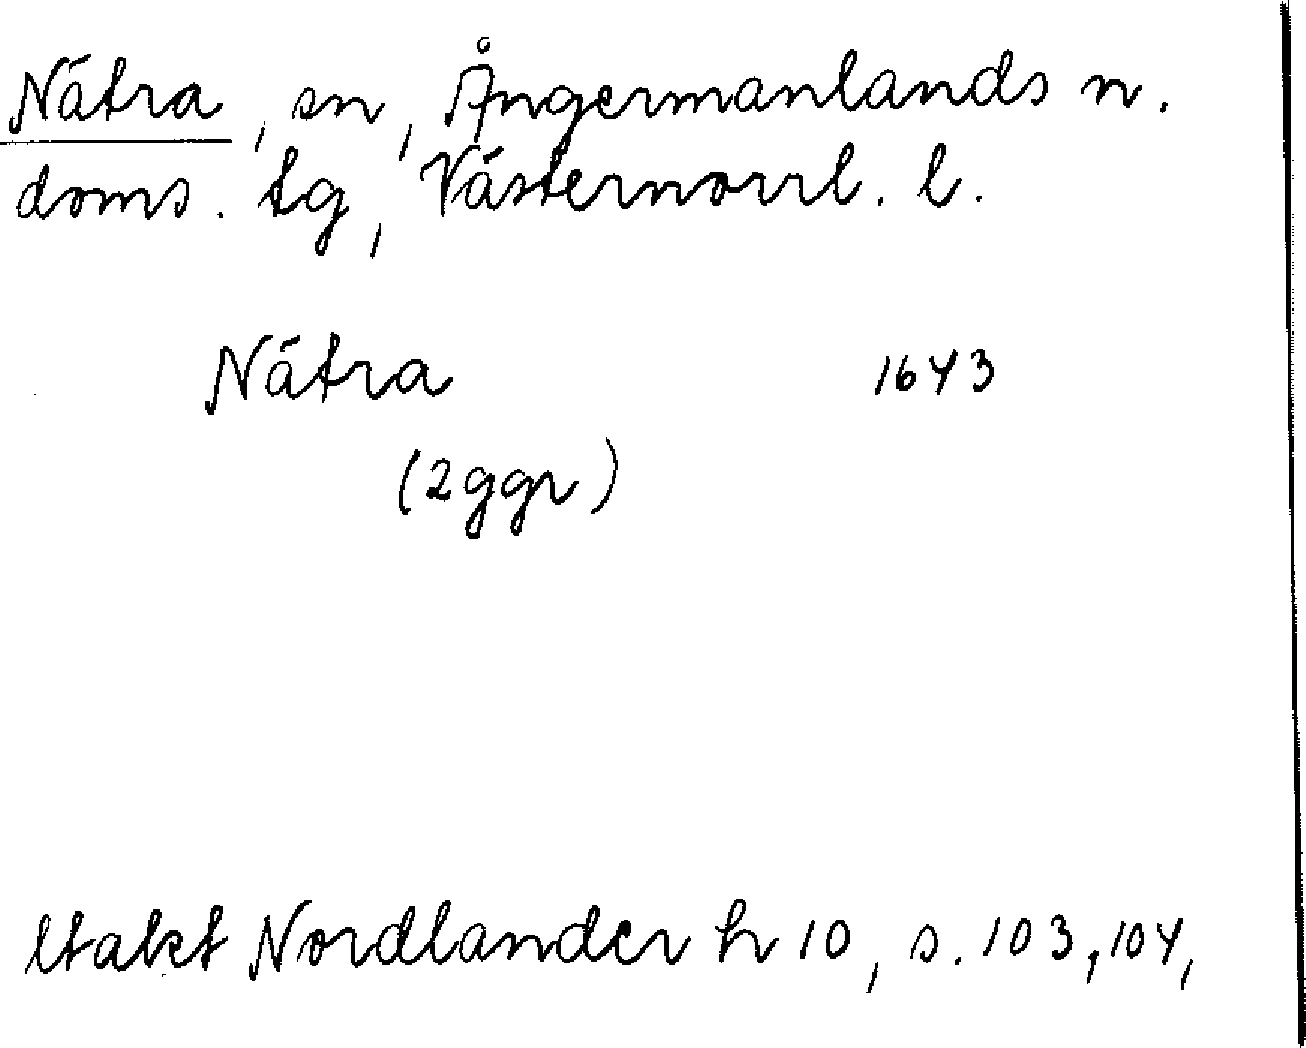 Nätra, sn, Ångermanlands n.
doms. tg, Västernorrl. l.
Nätra 1643
(2ggr)
Utakt Nordlander h 10, s. 103, 104,